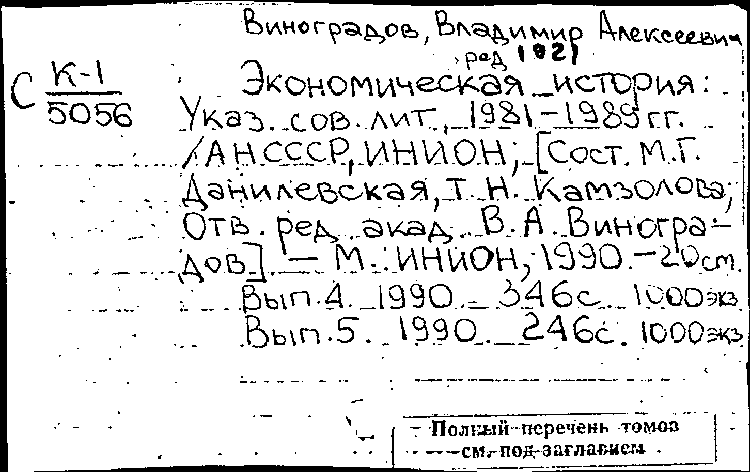 Виноградов, Владимир Алексеевич
ред 1921
С К-1
5056
Экономическая история:
Указ. сов. лит., 1981-1989 гг.
/АН СССР, ИНИОН; [Сост. М.Г.
Данилевская, Т.Н. Камзолова;
Отв. ред. акад. В.А. Виногра-
дов]. - М.: ИНИОН, 1990. - 20 см.
Вып. 4. 1990. 346 с. 1000 экз
Вып. 5. 1990. 246 с. 1000 экз
Полный перечень томов
см. под заглавием